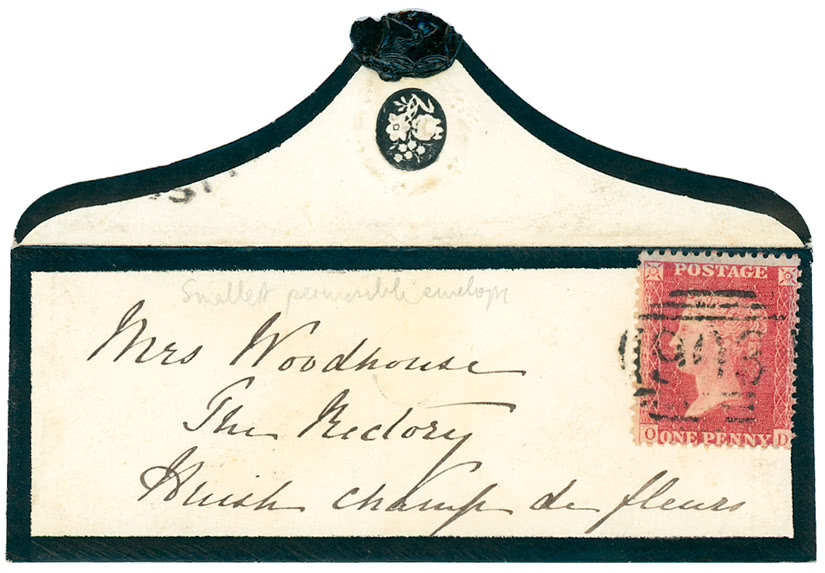 Smallest permissible envelope
POSTAGE
Mrs Woodhouse
The Rectory
Huish champ de fleurs
O ONE PENNY D